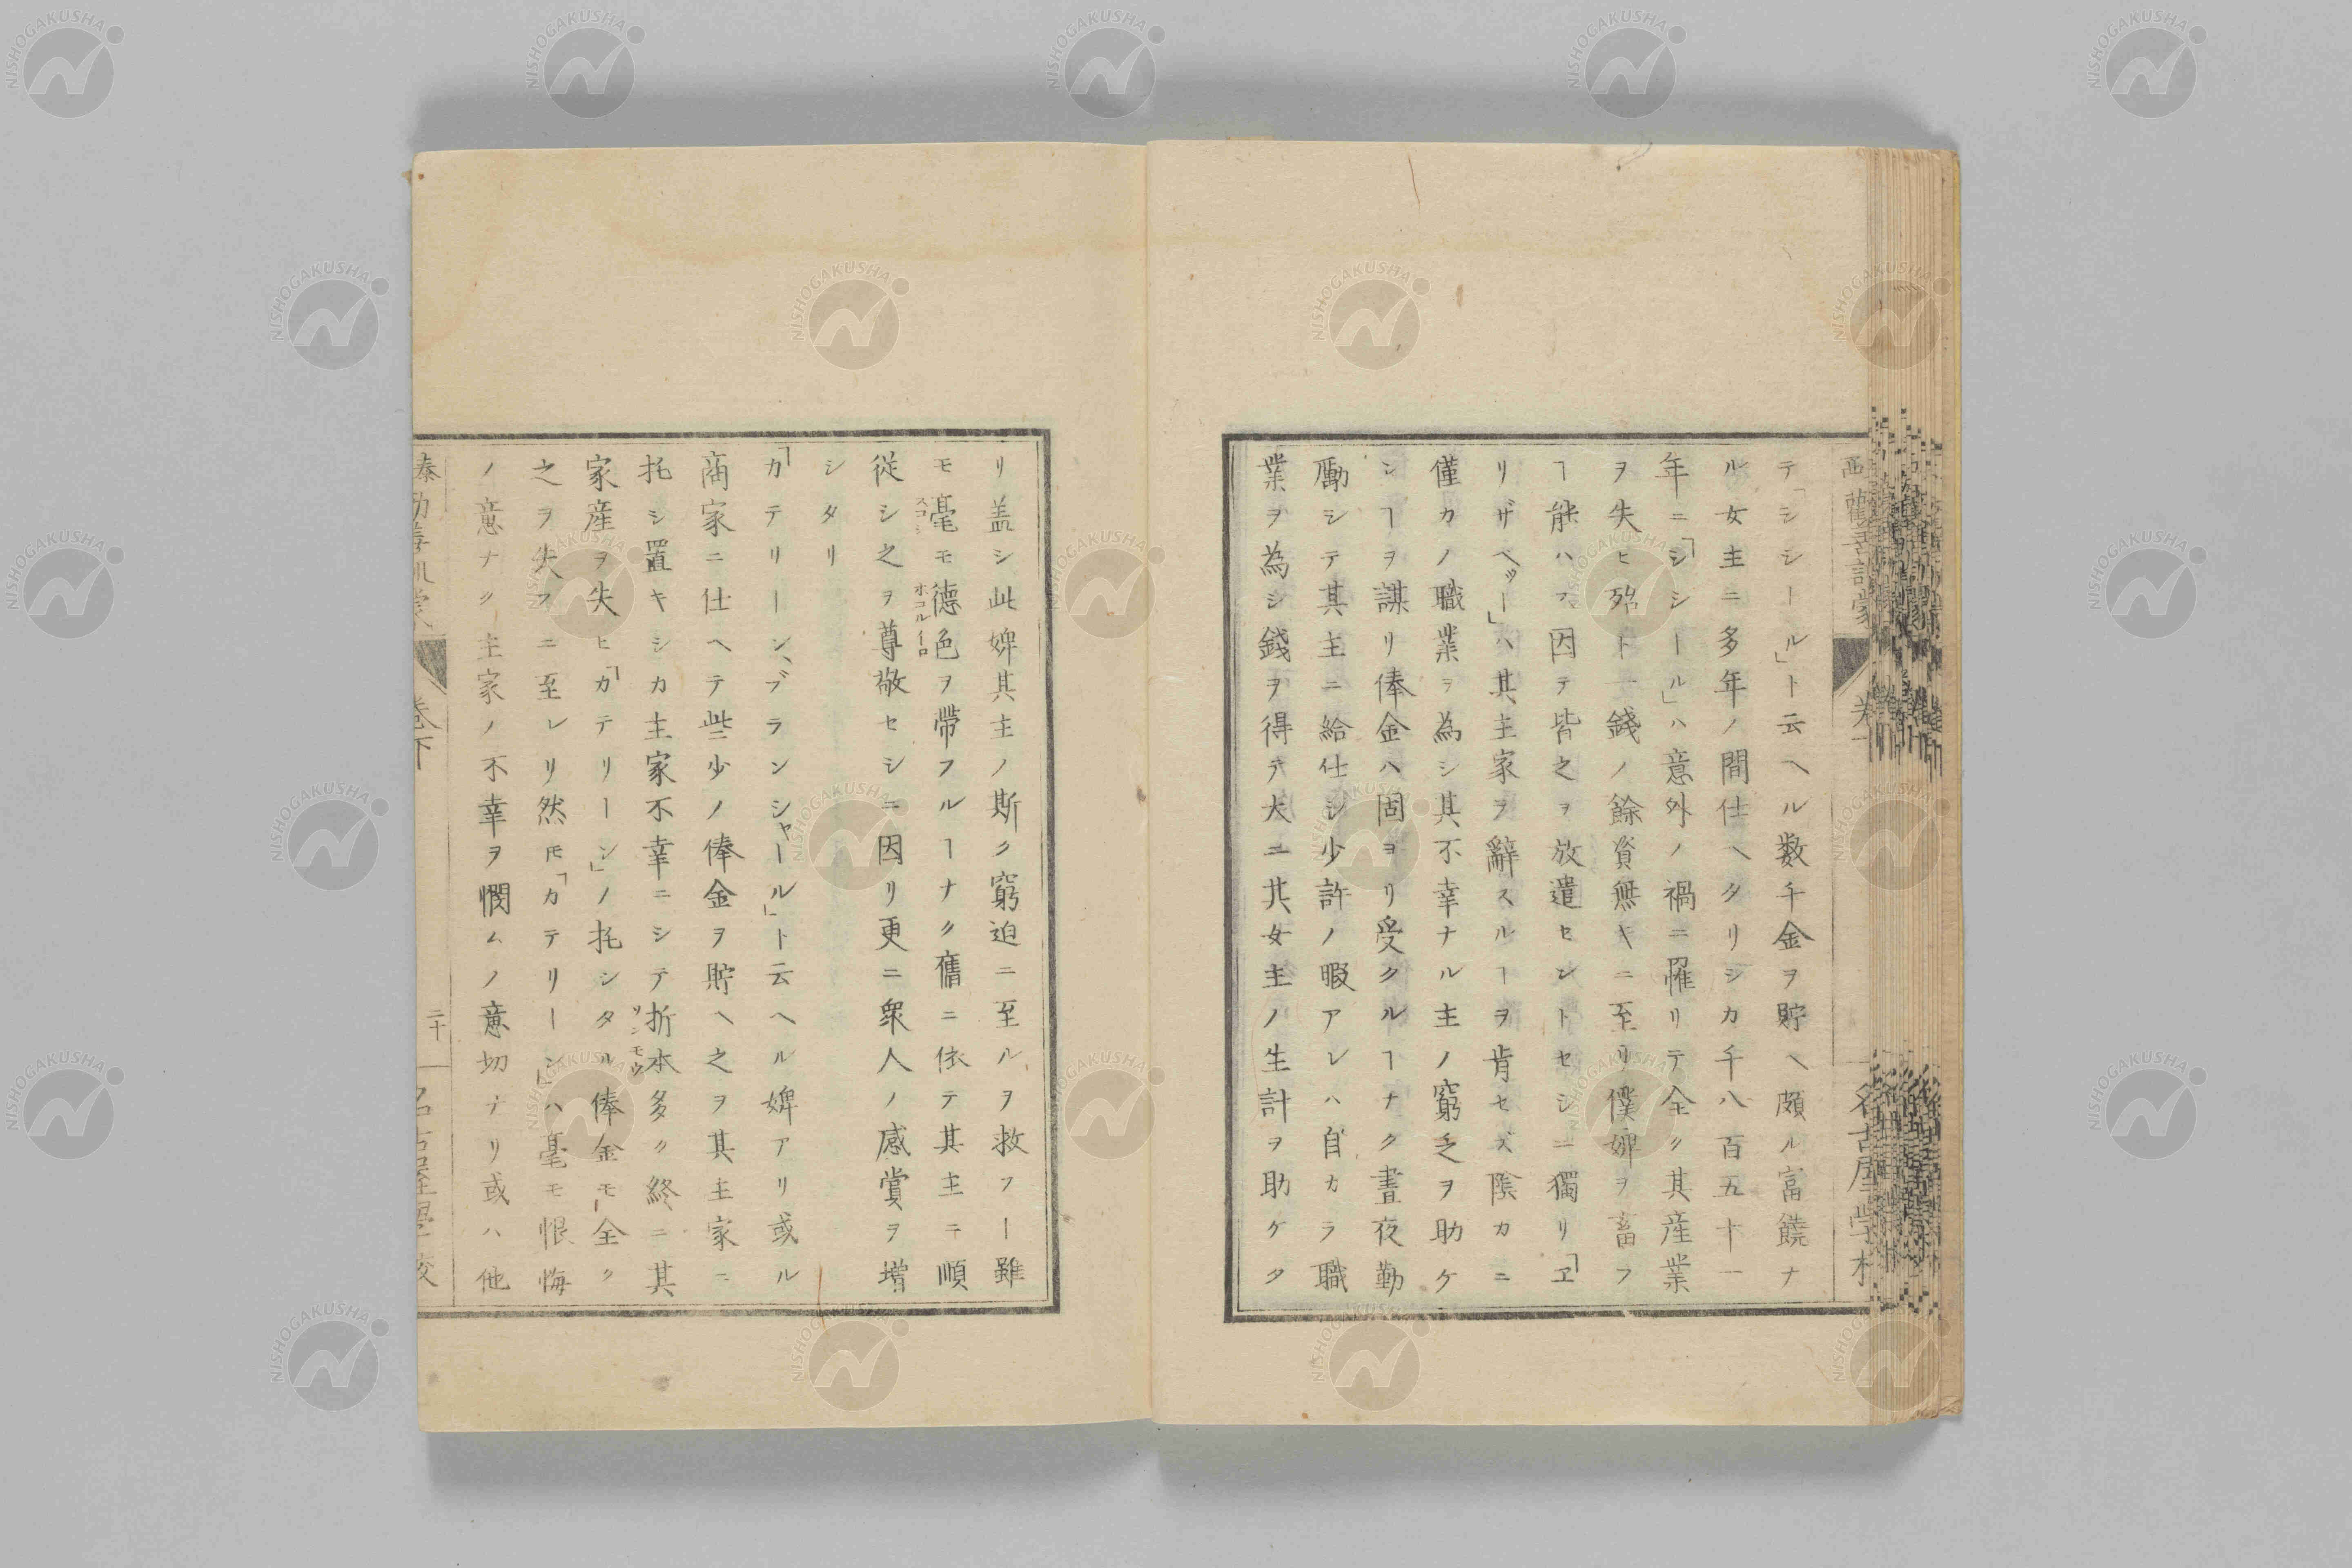 テ「シシール」ト云ヘル数千金ヲ貯ヘ頗ル富饒ナ
ル女主ニ多年ノ間仕ヘタリシカ千八百五十一
年ニ「シシール」ハ意外ノ禍ニ罹リテ全ク其産業
ヲ失ヒ殆ト一錢ノ餘資無キニ至リ僕婢ヲ畜フ
ヿ能ハス因テ皆之ヲ放遣セントセシニ獨リ「ヱ
リザベッー」ハ其主家ヲ辭スルヿヲ肯セズ陰カニ
僅カノ職業ヲ為シ其不幸ナル主ノ窮乏ヲ助ケ
シヿヲ謀リ俸金ハ固ヨリ受クルヿナク晝夜勤
勵シテ其主ニ給仕シ少許ノ暇アレハ自カラ職
業ヲ為シ錢ヲ得テ大ニ其女主ノ生計ヲ助ケタ
リ盖シ此婢其主ノ斯ク窮迫ニ至ルヲ救フヿ雖
モ毫モ德色ヲ帶フルヿナク舊ニ依テ其主ニ順
スコシ オコルイロ
從シ之ヲ尊敬セシニ因リ更ニ衆人ノ感賞ヲ増
シタリ
「カテリーン、ブランシャール」ト云ヘル婢アリ或ル
商家ニ仕ヘテ些少ノ俸金ヲ貯ヘ之ヲ其主家ニ
托シ置キシカ主家不幸ニシテ折本多ク終ニ其
リンモウ
家産ヲ失ヒ「カテリーン」ノ托シタル俸金モ全ク
之ヲ失フニ至レリ然𪜈「カテリーン」ハ毫モ恨悔
ノ意ナク主家ノ不幸ヲ憫ムノ意切ナリ或ハ他
巻下
二十
名古屋學校